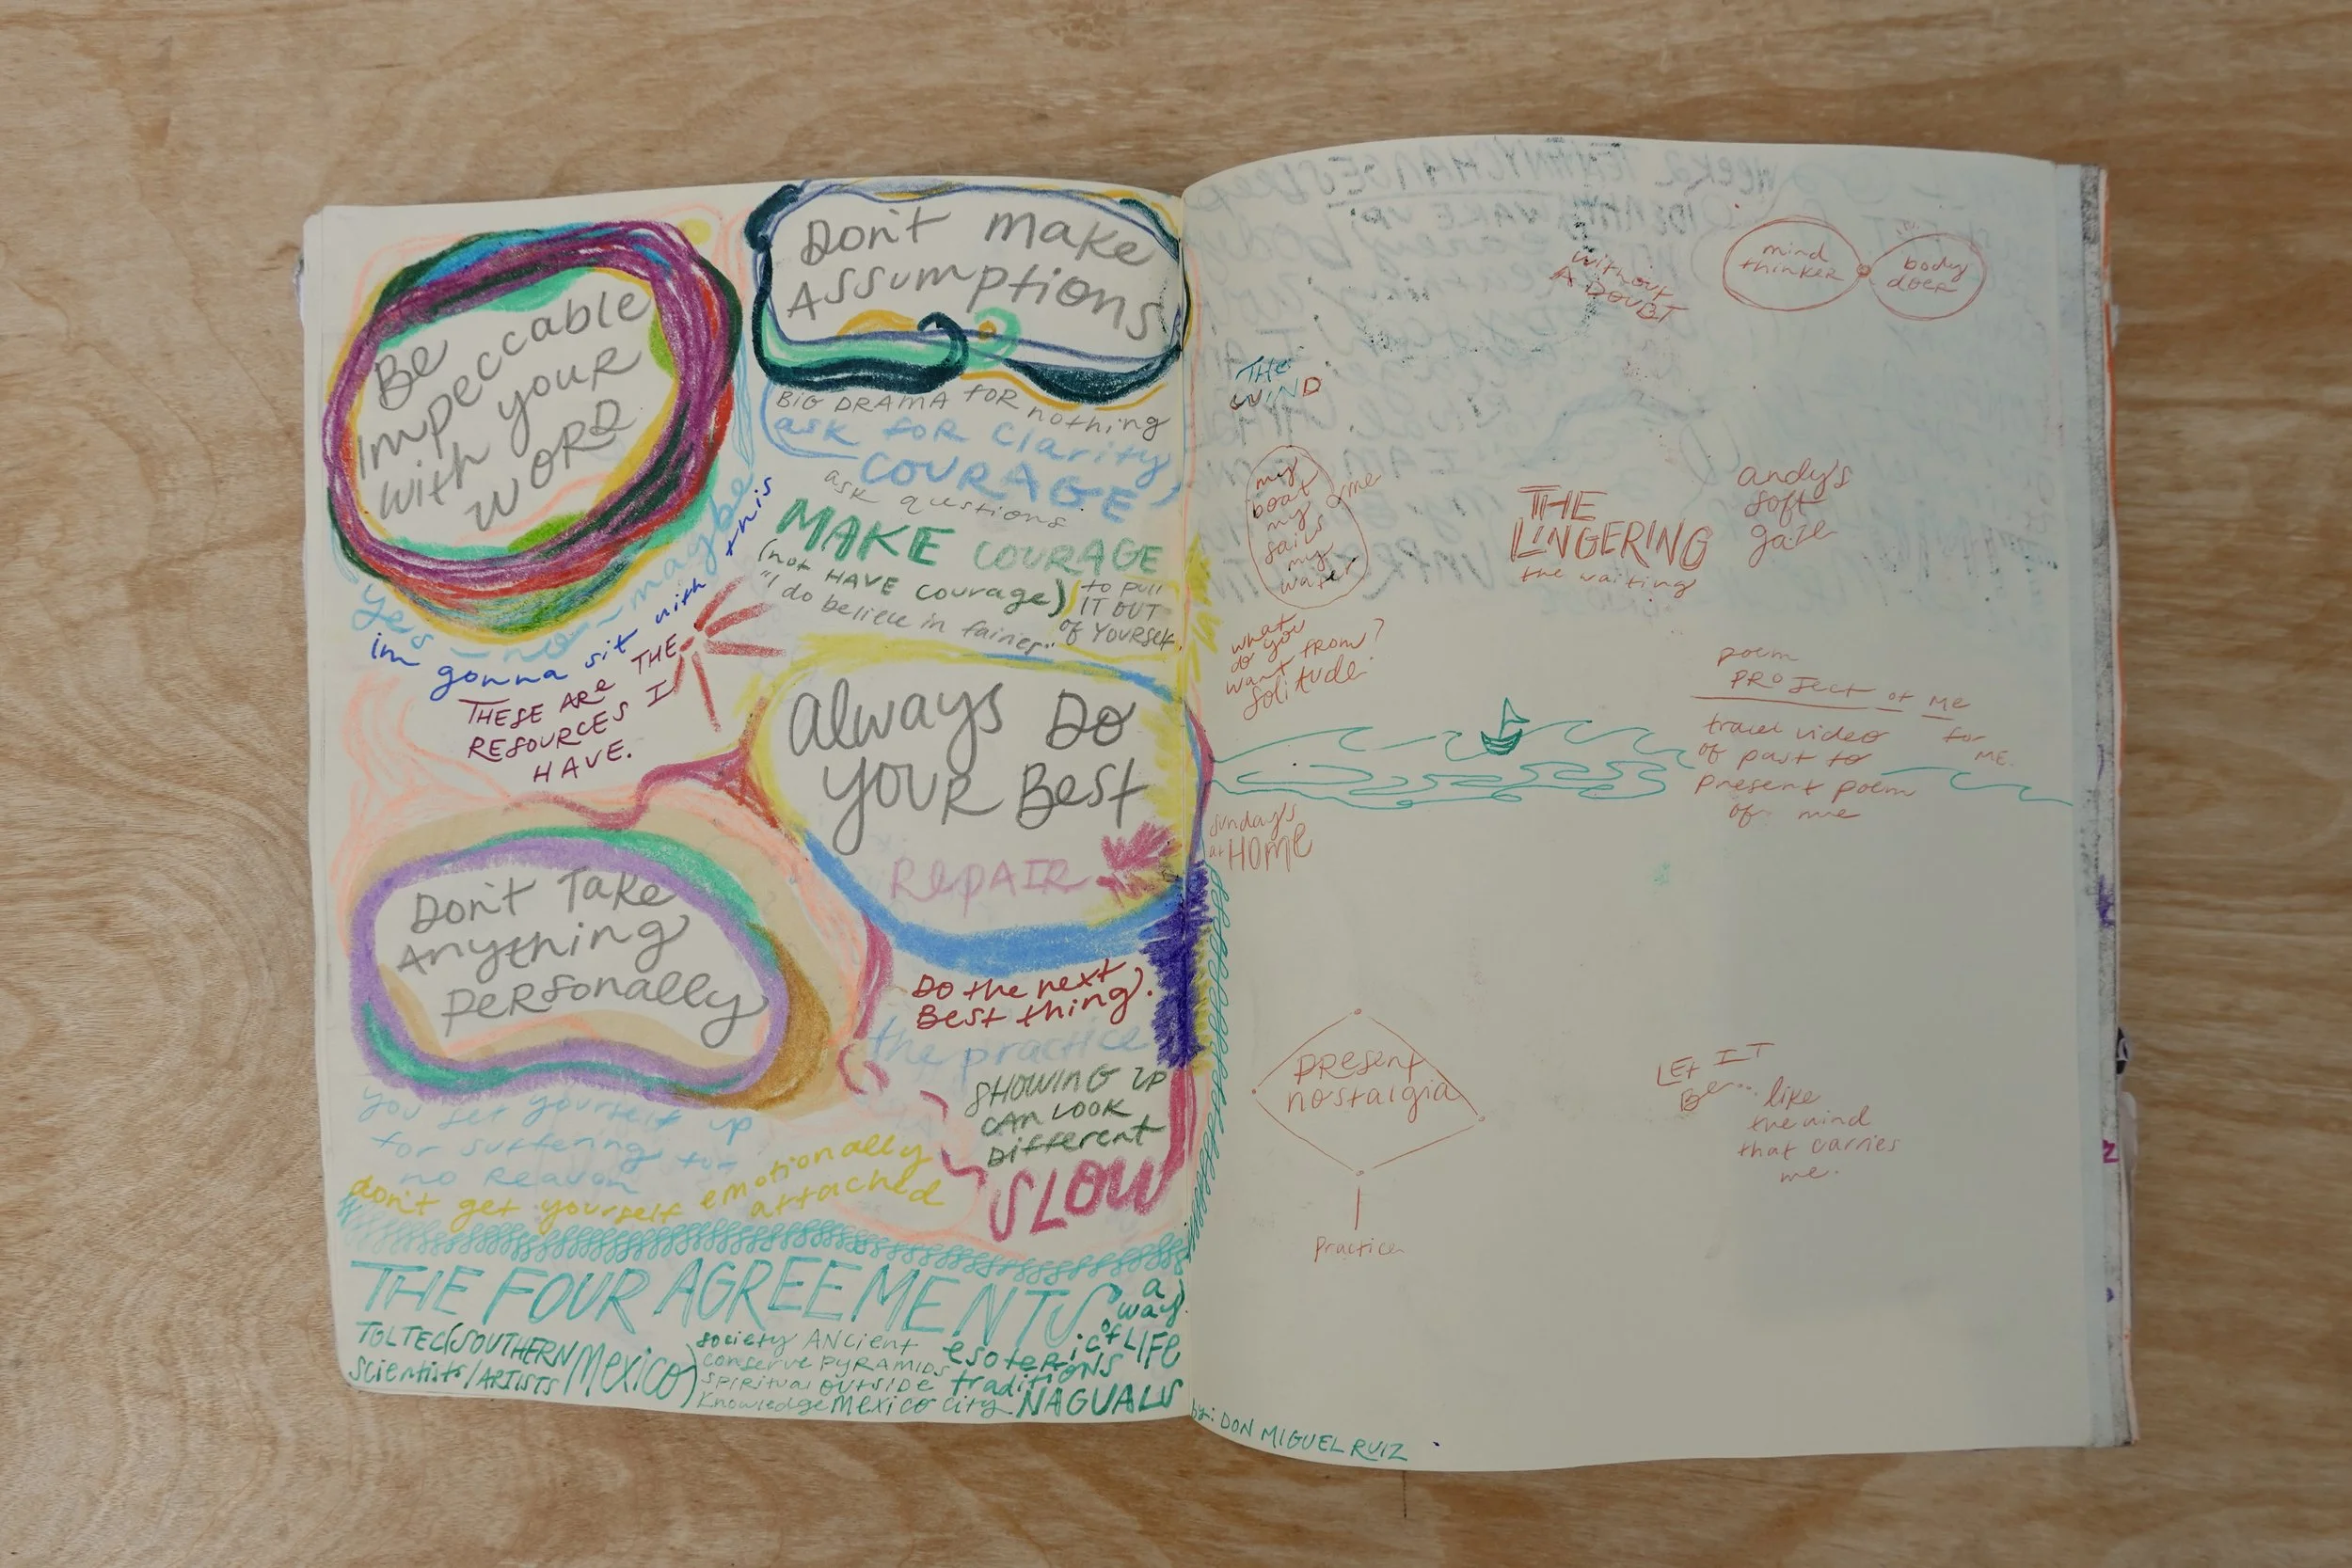 Be
impeccable
with your
WORD
Don't make
Assumptions
BIG DRAMA for nothing
ask for clarity,
COURAGE
ask questions
MAKE COURAGE
(not HAVE courage)
"I do believe in fairies"
to pull
IT OUT
of YOURSELF.
yes - no - maybe
im gonna sit with this
THESE ARE THE
RESOURCES I
HAVE.
Always Do
YOUR Best
REPAIR
Don't Take
Anything
personally
Do the next
Best thing.
the practice
SHOWING UP
CAN LOOK
Different
SLOW
you set yourself up
for suffering for
no reason
don't get yourself emotionally
attached
THE FOUR AGREEMENTS
a
way
of LIFE
TOLTEC (SOUTHERN
Mexico)
scientists/ARTISTS
society ANCient
conserve PYRAMIDS
spiritual OUTSIDE
Knowledge Mexico City
esoteric
traditions
NAGUALS
by: DON MIGUEL RUIZ
without
A DOUBT
mind
thinker
body
doer
THE
WIND
my
boat
my
sails
my
water
me
THE
LINGERING
the waiting
andy's
soft
gaze
what
do you
want from
solitude?
poem
PROJECT of Me
for
ME.
travel video
of past to
present poem
of me
sundays
at HOME
present
nostalgia
Practice
LET IT
Be... like
the wind
that carries
me.